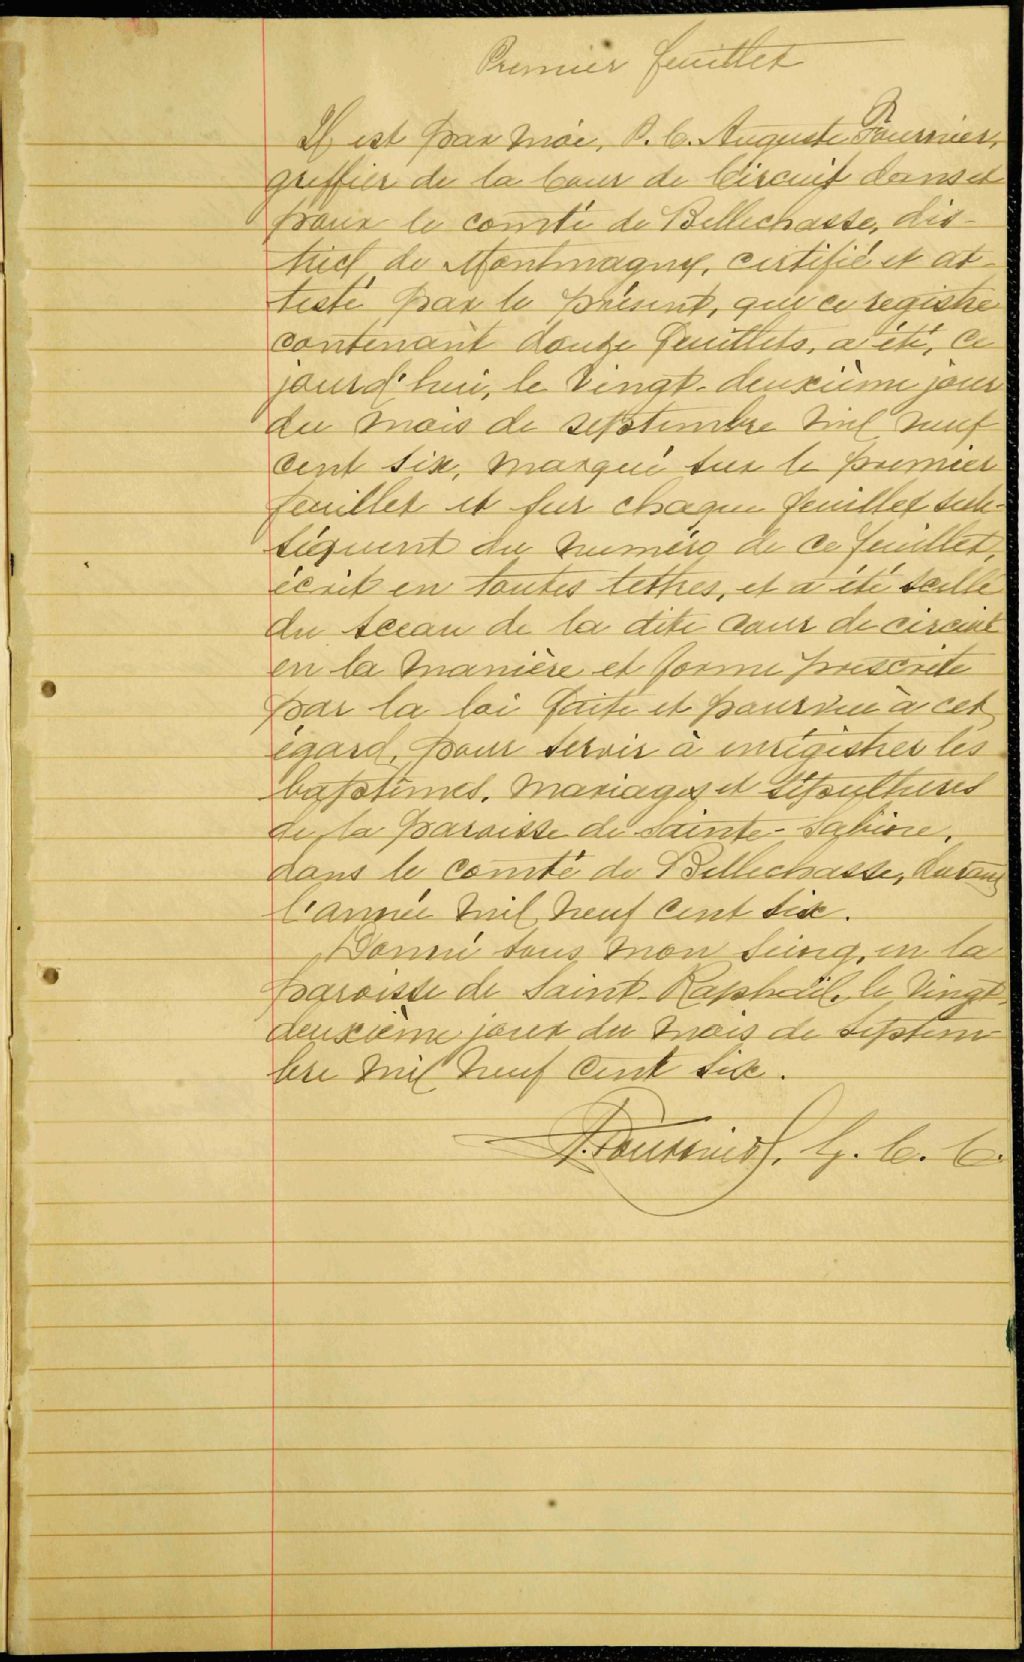 Premier feuillet
Il est par moi, P. C. Auguste Fournier,
greffier de la Cour de Circuit dans et
pour le comté de Bellechasse, dis-
trict de Montmagny, certifié et at-
testé par le présent, que ce registre
contenant douze feuillets, a été, ce
jourd'hui, le vingt-deuxième jour
du mois de septembre mil neuf
cent six, marqué sur le premier
feuillet et sur chaque feuillet sub-
séquent du numéro de ce feuillet,
écrit en toutes lettres, et a été scellé
du sceau de la dite cour de circuit
en la manière et forme prescrite
par la loi faite et pourvue à cet
égard, pour servir à enrégistrer les
baptêmes, mariages et sépultures
de la paroisse de Sainte-Sabine,
dans le comté de Bellechasse, durant
l'année mil neuf cent six.
Donné sous mon seing, en la
paroisse de Saint-Raphaël, le vingt-
deuxième jour du mois de septem-
bre mil neuf cent six.
A. Fournier, G. C. C.